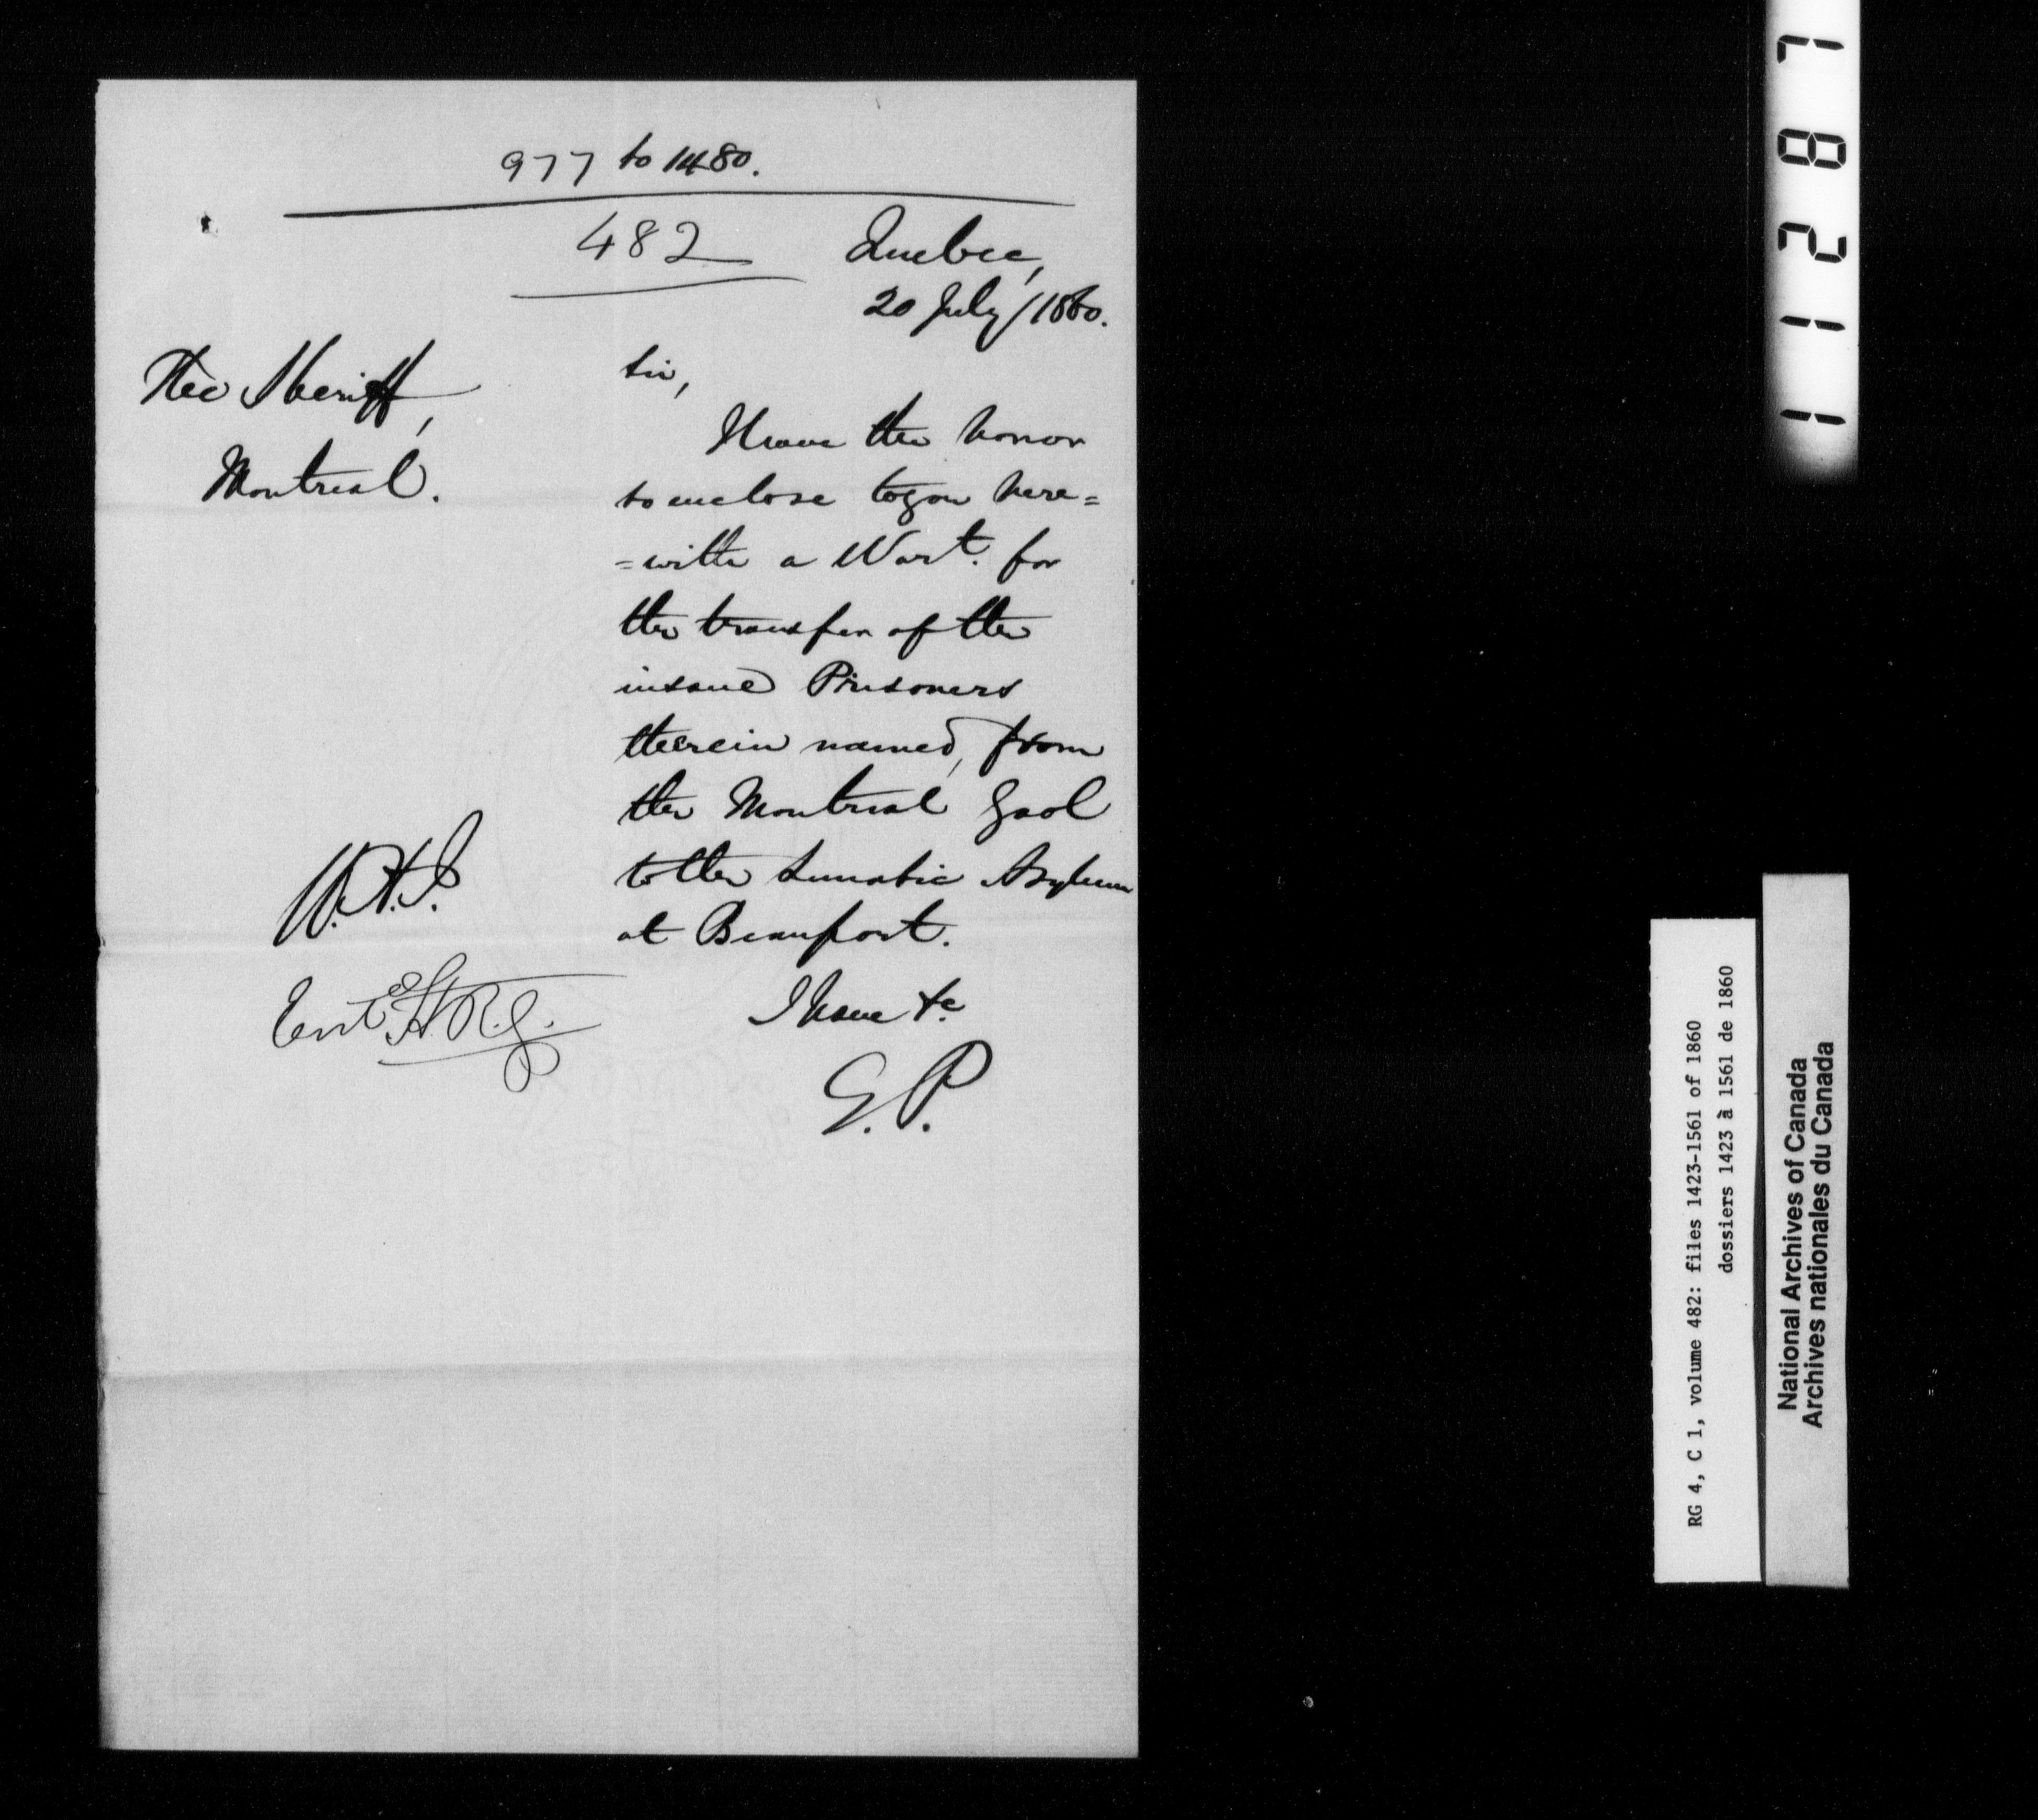 977 to 1480.
482
Quebec,
20 July/1860.
The Sheriff,
Montreal.
Sir,
I have the honor
to enclose to you here=
=with a Wart. for
the transfer of the
insane Prisoners
therein named, from
the Montreal Gaol
to the Lunatic Asylum
at Beauport.
I have &c
E.P.
W.H.J.
Entd H.R.G.
11287
RG 4, C 1, volume 482: files 1423-1561 of 1860
dossiers 1423 à 1561 de 1860
National Archives of Canada
Archives nationales du Canada